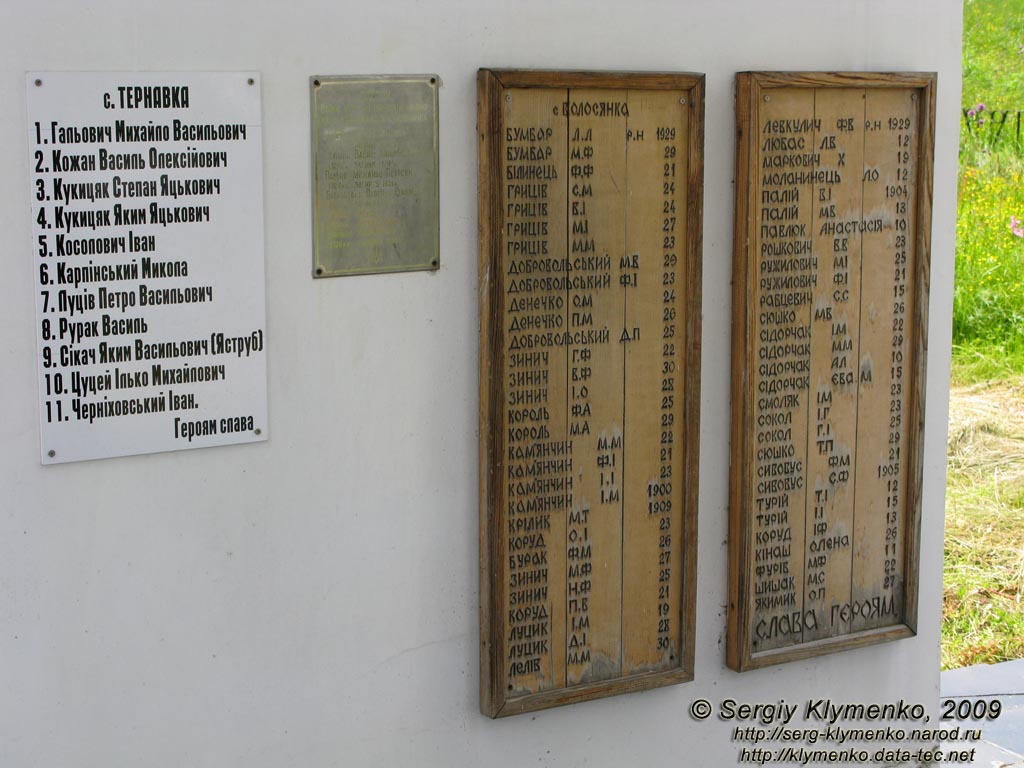 с. ТЕРНАВКА
1. Гальович Михайло Васильович
2. Кожан Василь Олексійович
3. Кукицяк Степан Яцькович
4. Кукицяк Яким Яцькович
5. Косопович Іван
6. Карпінський Микола
7. Луців Петро Васильович
8. Рурак Василь
9. Сікач Яким Васильович (Яструб)
10. Цуцей Ілько Михайлович
11. Черніховський Іван.
Героям слава
с Волосянка
БУМБАР Л.Л р.н 1929
БУМБАР М.Ф 29
БІЛИНЕЦЬ Ф.Ф 21
ГРИЦІВ С.М 24
ГРИЦІВ В.І 24
ГРИЦІВ М.І 27
ГРИЦІВ М.М 23
ДОБРОВОЛЬСЬКИЙ М.В 29
ДОБРОВОЛЬСЬКИЙ Ф.І 23
ДЕНЕЧКО О.М 24
ДЕНЕЧКО П.М 26
ДОБРОВОЛЬСЬКИЙ Д.П 25
ЗИНИЧ Г.Ф 22
ЗИНИЧ В.Ф 30
ЗИНИЧ І.О 28
КОРОЛЬ Ф.А 25
КОРОЛЬ М.А 29
КАМ'ЯНЧИН М.М 22
КАМ'ЯНЧИН Ф.І 21
КАМ'ЯНЧИН І.І 23
КАМ'ЯНЧИН І.М 1900
КРІЛИК М.Т 1909
КОРУД О.І 23
БУРАК Ф.М 26
ЗИНИЧ М.Ф 27
ЗИНИЧ Н.Ф 25
КОРУД П.В 21
ЛУЦИК І.М 19
ЛУЦИК Д.І 28
ЛЕЛІВ М.М 30
ЛЕВКУЛИЧ Ф.В р.н 1929
ЛЮБАС Л.В 12
МАРКОВИЧ Х 19
МОЛАНИНЕЦЬ Л.О 12
ПАЛІЙ В.І 1904
ПАЛІЙ М.В 13
ПАВЛЮК АНАСТАСІЯ 10
РОШКОВИЧ В.В 23
РУЖИЛОВИЧ М.І 25
РУЖИЛОВИЧ Ф.І 21
РАБЦЕВИЧ С.С 15
СЮШКО М.В 26
СІДОРЧАК І.М 22
СІДОРЧАК М.М 29
СІДОРЧАК А.Л 10
СІДОРЧАК ЄВА.М 15
СМОЛЯК І.М 23
СОКОЛ І.Г 23
СОКОЛ Г.І 25
СЮШКО Т.П 29
СИВОВУС Ф.М 21
СИВОВУС С.Ф 1905
ТУРІЙ Т.І 12
ТУРІЙ І.І 15
КОРУД І.Ф 13
КІНАШ ОЛЕНА 26
ФУРІВ М.Ф 11
ШИШАК М.С 22
ЯКИМИК О.П 27
СЛАВА ГЕРОЯМ.
© Sergiy Klymenko, 2009
http://serg-klymenko.narod.ru
http://klymenko.data-tec.net